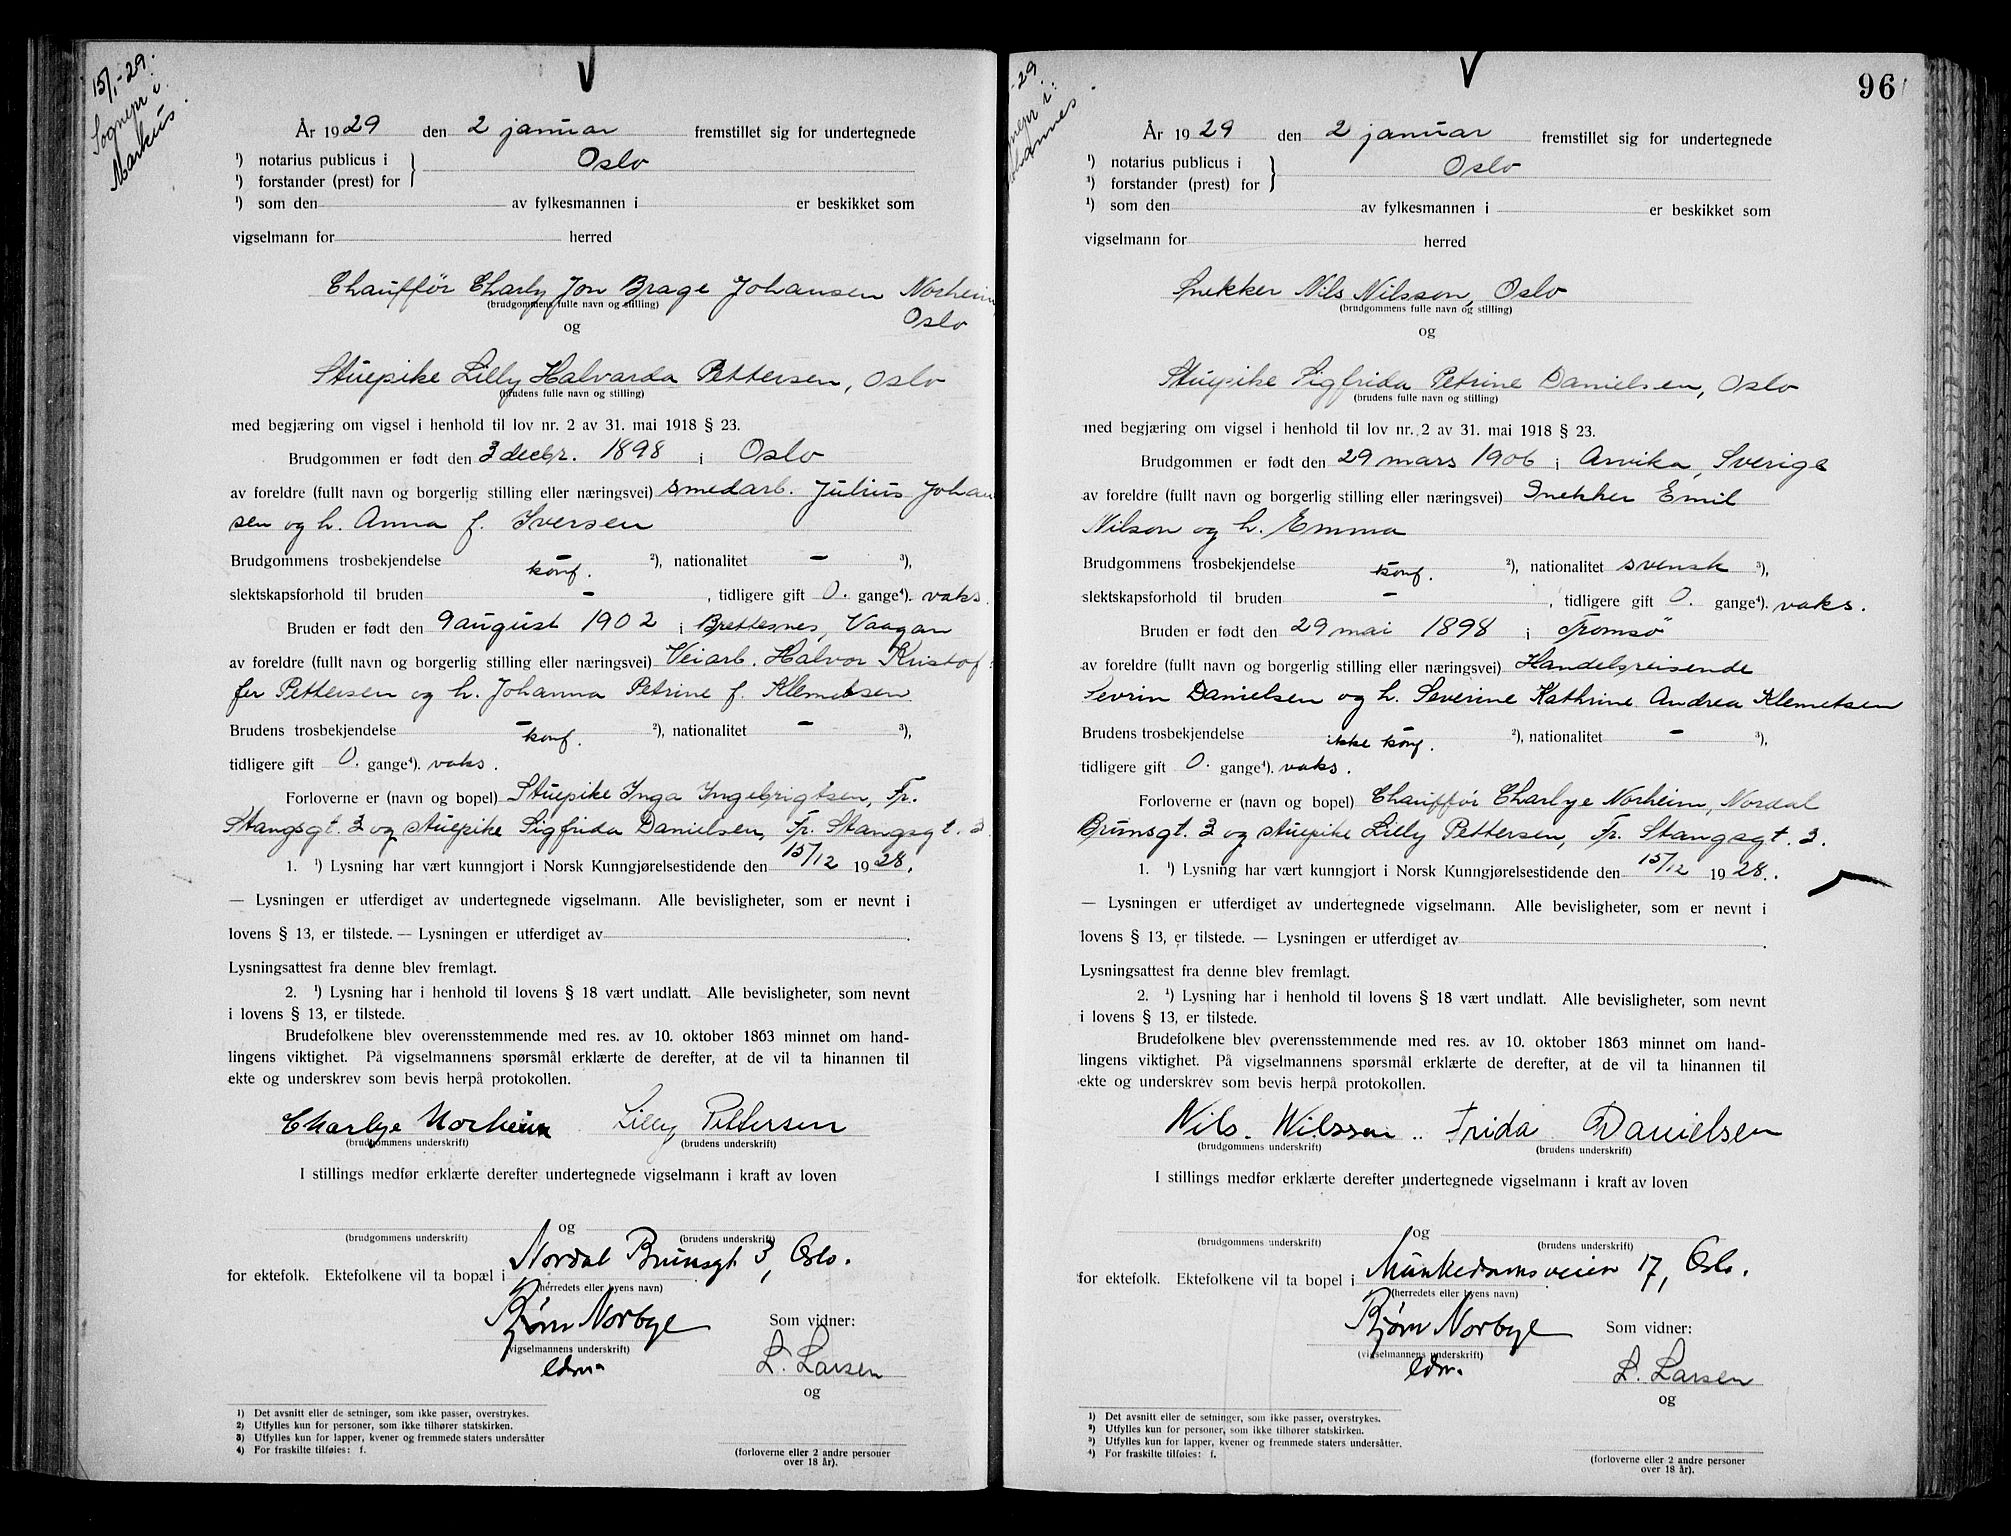 15/1-29.
Sognepr i
Markus.
År 1929 den 2 januar fremstillet sig for undertegnede
¹) notarius publicus i
¹) forstander (prest) for } Oslo
¹) som den av fylkesmannen i er beskikket som
vigselmann for herred
Chauffør Charly Jon Brage Johansen Norheim
(brudgommens fulle navn og stilling)
Oslo
og
Stuepike Lilly Halvarda Pettersen, Oslo
(brudens fulle navn og stilling)
med begjæring om vigsel i henhold til lov nr. 2 av 31. mai 1918 § 23.
Brudgommen er født den 3 decbr. 1898 i Oslo
av foreldre (fullt navn og borgerlig stilling eller næringsvei) smedarb. Julius Johan
sen og h. Anna f. Iversen
Brudgommens trosbekjendelse – konf. ²), nationalitet – ³),
slektskapsforhold til bruden – , tidligere gift 0. gange⁴). vaks.
Bruden er født den 9 august 1902 i Brettesnes, Vaagan
av foreldre (fullt navn og borgerlig stilling eller næringsvei) Veiarb. Halvor Kristof
fer Pettersen og h. Johanna Petrine f. Klemetsen
Brudens trosbekjendelse – konf. ²), nationalitet – ³),
tidligere gift 0. gange⁴). vaks.
Forloverne er (navn og bopel) Stuepike Inga Ingebrigtsen, Fr.
Stangsgt. 3 og stuepike Sigfrida Danielsen, Fr. Stangsgt. 3
1. ¹) Lysning har vært kunngjort i Norsk Kunngjørelsestidende den 15/12 1928.
— Lysningen er utferdiget av undertegnede vigselmann. Alle bevisligheter, som er nevnt i
lovens § 13, er tilstede. — Lysningen er utferdiget av .
Lysningsattest fra denne blev fremlagt.
2. ¹) Lysning har i henhold til lovens § 18 vært undlatt. Alle bevisligheter, som nevnt
i lovens § 13, er tilstede.
Brudefolkene blev overensstemmende med res. av 10. oktober 1863 minnet om hand-
lingens viktighet. På vigselmannens spørsmål erklærte de derefter, at de vil ta hinannen til
ekte og underskrev som bevis herpå protokollen.
Charlye Norheim Lilly Pettersen
(brudgommens underskrift) (brudens underskrift)
I stillings medfør erklærte derefter undertegnede vigselmann i kraft av loven
og
(brudgommens underskrift) (brudens underskrift)
for ektefolk. Ektefolkene vil ta bopæl i Nordal Brunsgt 3, Oslo.
(herredets eller byens navn)
Bjørn Norbye Som vidner:
(vigselmannens underskrift)
edm. L. Larsen
og
1) Det avsnitt eller de setninger, som ikke passer, overstrykes.
2) Utfylles kun for personer, som ikke tilhører statskirken.
3) Utfylles kun for lapper, kvener og fremmede staters undersåtter
4) For fraskilte tilføies: f.
(forloverne eller 2 andre personer
over 18 år).
96
-29
År 1929 den 2 januar fremstillet sig for undertegnede
¹) notarius publicus i
¹) forstander (prest) for } Oslo
¹) som den av fylkesmannen i er beskikket som
vigselmann for herred
Snekker Nils Nilsson, Oslo
(brudgommens fulle navn og stilling)
og
Stuepike Sigfrida Petrine Danielsen, Oslo
(brudens fulle navn og stilling)
med begjæring om vigsel i henhold til lov nr. 2 av 31. mai 1918 § 23.
Brudgommen er født den 29 mars 1906 i Arvika, Sverige
av foreldre (fullt navn og borgerlig stilling eller næringsvei) Snekker Emil
Nilson og h. Emma
Brudgommens trosbekjendelse – konf. ²), nationalitet svensk ³),
slektskapsforhold til bruden – , tidligere gift 0. gange⁴). vaks.
Bruden er født den 29 mai 1898 i Tromsö
av foreldre (fullt navn og borgerlig stilling eller næringsvei) Handelsreisende
Sevrin Danielsen og h. Severine Kathrine Andrea Klemetsen
Brudens trosbekjendelse ikke konf. ²), nationalitet – ³),
tidligere gift 0. gange⁴). vaks.
Forloverne er (navn og bopel) Chauffør Charlye Norheim, Nordal
Brunsgt. 3 og stuepike Lilly Pettersen, Fr. Stangsgt. 3.
1. ¹) Lysning har vært kunngjort i Norsk Kunngjørelsestidende den 15/12 1928.
— Lysningen er utferdiget av undertegnede vigselmann. Alle bevisligheter, som er nevnt i
lovens § 13, er tilstede. — Lysningen er utferdiget av .
Lysningsattest fra denne blev fremlagt.
2. ¹) Lysning har i henhold til lovens § 18 vært undlatt. Alle bevisligheter, som nevnt
i lovens § 13, er tilstede.
Brudefolkene blev overensstemmende med res. av 10. oktober 1863 minnet om hand-
lingens viktighet. På vigselmannens spørsmål erklærte de derefter, at de vil ta hinannen til
ekte og underskrev som bevis herpå protokollen.
Nils. Nilssen .. Frida Danielsen
(brudgommens underskrift) (brudens underskrift)
I stillings medfør erklærte derefter undertegnede vigselmann i kraft av loven
og
(brudgommens underskrift) (brudens underskrift)
for ektefolk. Ektefolkene vil ta bopel i Munkedamsveien 17, Oslo.
(herredets eller byens navn)
Bjørn Norbye Som vidner:
(vigselmannens underskrift)
edm. L. Larsen
og
1) Det avsnitt eller de setninger, som ikke passer, overstrykes.
2) Utfylles kun for personer, som ikke tilhører statskirken.
3) Utfylles kun for lapper, kvener og fremmede staters undersåtter.
4) For fraskilte tilføies: f.
(forloverne eller 2 andre personer
over 18 år).